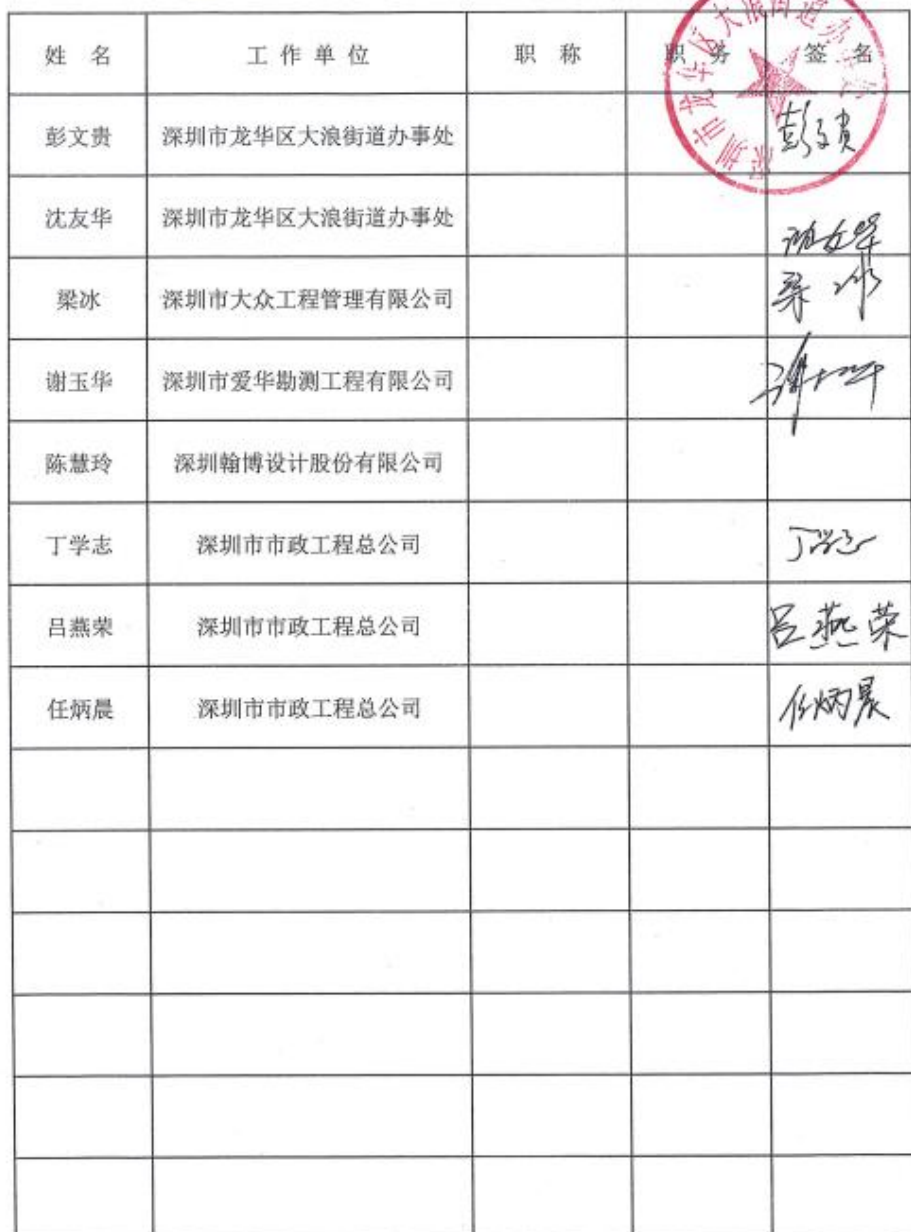 深圳市龙华区大浪街道办事处
姓 名 工作单位 职 称 职 务 签 名
彭文贵 深圳市龙华区大浪街道办事处 彭文贵
沈友华 深圳市龙华区大浪街道办事处 沈友华
梁冰 深圳市大众工程管理有限公司 梁冰
谢玉华 深圳市爱华勘测工程有限公司 谢玉华
陈慧玲 深圳翰博设计股份有限公司
丁学志 深圳市市政工程总公司 丁学志
吕燕荣 深圳市市政工程总公司 吕燕荣
任炳晨 深圳市市政工程总公司 任炳晨